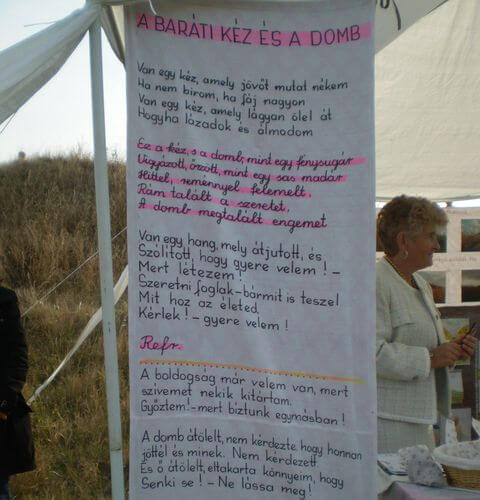 A BARÁTI KÉZ ÉS A DOMB
Van egy kéz, amely jövőt mutat nékem
Ha nem birom, ha fáj nagyon
Van egy kéz, amely lágyan ölel át
Hogyha lázadok és álmodom
Ez a kéz, s a domb, mint egy fénysugár
Vigyázott, őrzött, mint egy sas madár
Hittel, reménnyel felemelt,
Rám talált a szeretet,
A domb megtalált engemet
Van egy hang, mely átjutott, és
Szólított, hogy gyere velem! -
Mert létezem!
Szeretni foglak - bármit is teszel
Mit hoz az életed.
Kérlek! - gyere velem!
Refr.
A boldogság már velem van, mert
szivemet nekik kitártam.
Győztem! - mert biztunk egymásban!
A domb átölelt, nem kérdezte, hogy honnan
jöttél és minek. Nem kérdezett.
És ő átölelt, eltakarta könnyeim, hogy
Senki se! - Ne lássa meg!